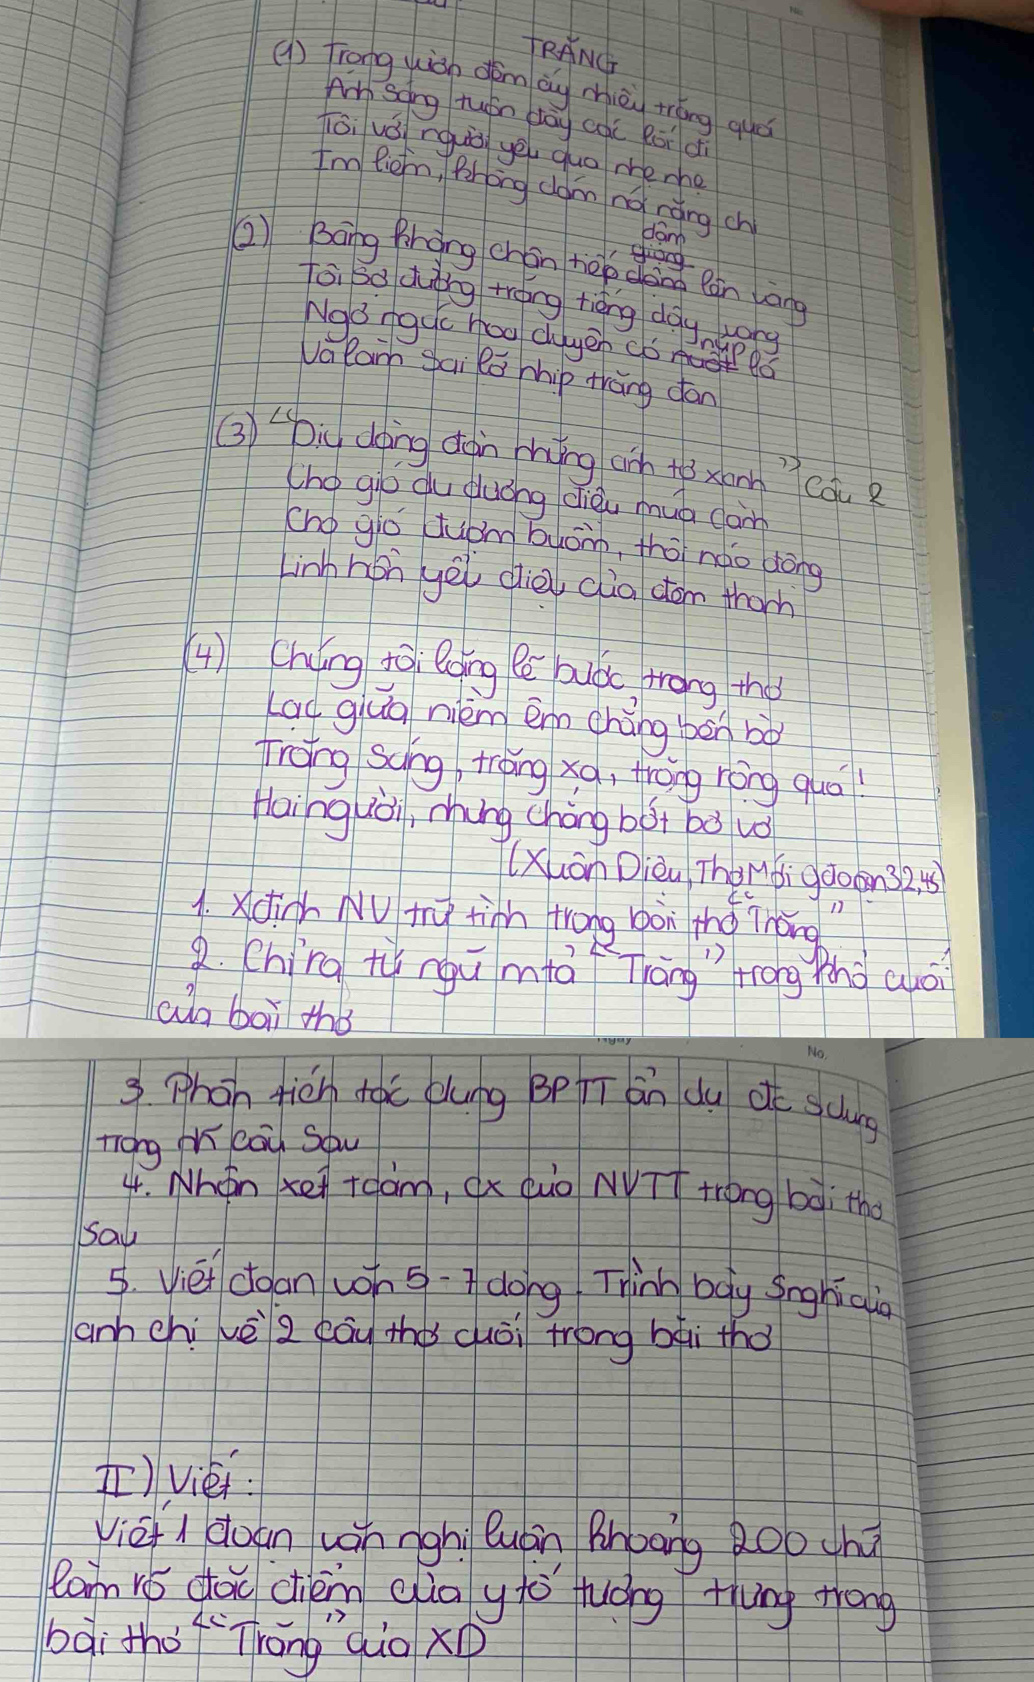 TRĂNG
(1) Trong vườn đêm ấy nhiều trăng quá
Ánh sáng tuôn đầy các lối đi
Tôi với người yêu qua nhè nhẹ
Im liềm, không dám nói năng chi
dậm
(2) Bâng khâng chân tiếp giọng dòng lên vàng
Tôi sợ đường trăng tiếng dậy vang
Ngơ ngác hoa duyên có nuột núp lá
Và làm sai lỡ nhịp trăng đan
(3) "Dịu dàng đàn những ánh tơ xanh" câu 2
Cho gió du dương điệu múa cành
Cho gió đượm buồm, thôi náo động
Linh hồn yểu điệu của đêm thanh
(4) Chúng tôi lặng lẽ bước, trong thơ
Lạc giữa niềm êm chẳng bến bờ
Trăng sáng, trăng xa, trăng rộng quá!
Hai người, nhưng chẳng bớt bơ vơ
(Xuân Diệu, Thơ Mới gđoạn 32,45)
1. Xđịnh NV trữ tình trong bài thơ "Trăng"
2. Chỉ ra từ ngữ mtả "Trăng" trong khổ cuối
của bài thơ
No.
3. Phân tích tác dụng BPTT ẩn dụ đc sdụng
trong câu sau
4. Nhận xét tcảm, cx của NVTT trong bài thơ
sau
5. Viết đoạn văn 5-7 dòng. Trình bày snghĩ của
anh chị về 2 câu thơ cuối trong bài thơ
II) Viết:
Viết 1 đoạn văn nghị luận khoảng 200 chữ
làm rõ đặc điểm của ytố tượng trưng trong
bài thơ "Trăng" của XD